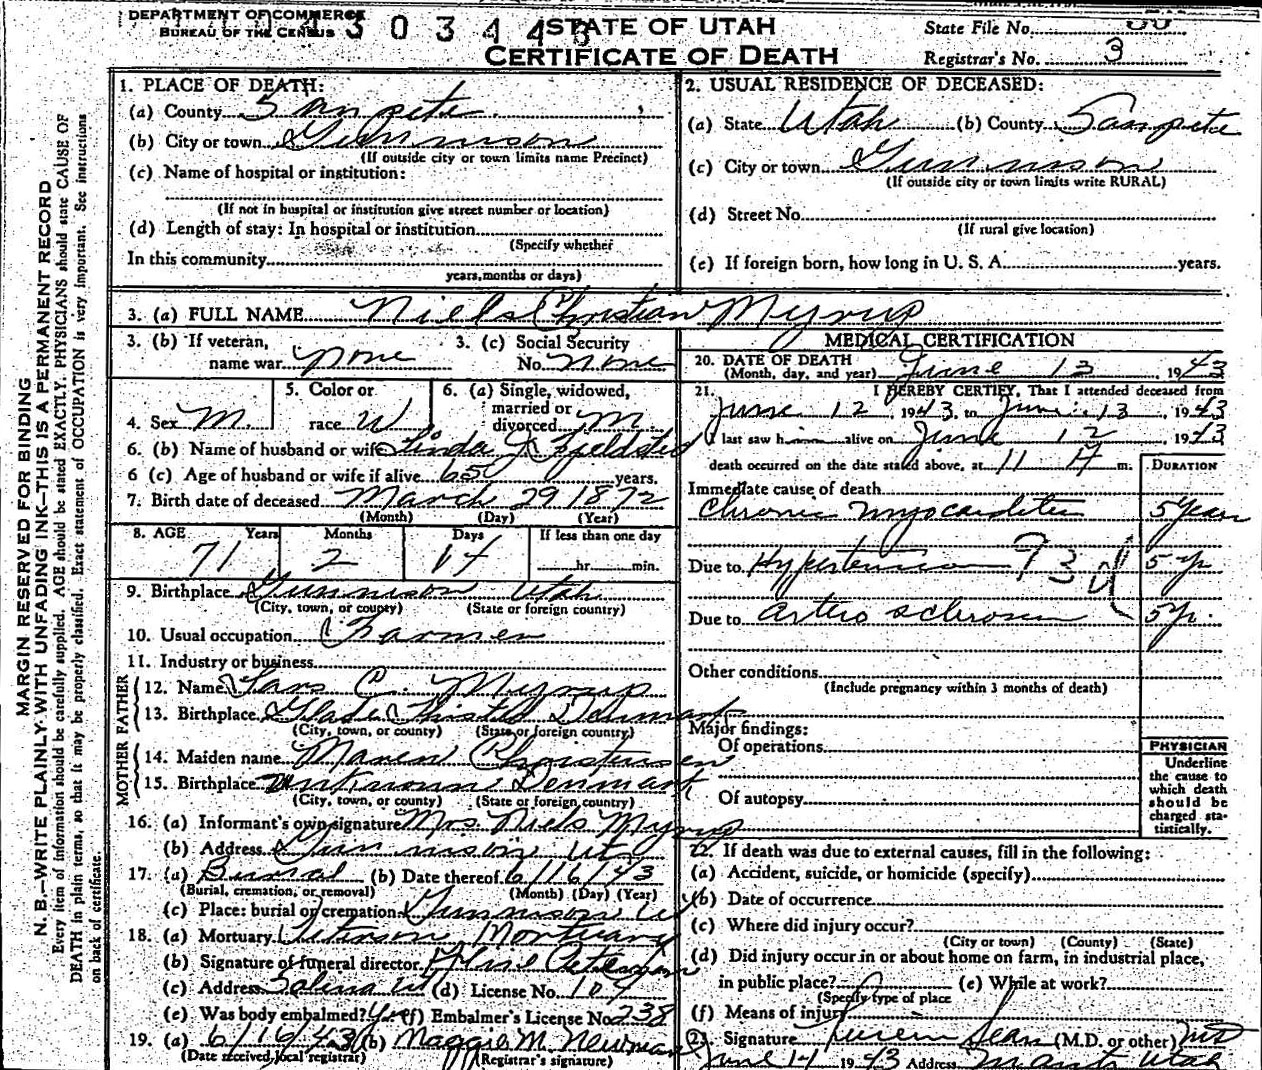 DEPARTMENT OF COMMERCE
BUREAU OF THE CENSUS
STATE OF UTAH
CERTIFICATE OF DEATH
State File No.
Registrar's No. 3
MARGIN RESERVED FOR BINDING
N. B.—WRITE PLAINLY WITH UNFADING INK—THIS IS A PERMANENT RECORD
Every item of information should be carefully supplied. AGE should be stated EXACTLY. PHYSICIANS should state CAUSE OF
DEATH in plain terms, so that it may be properly classified. Exact statement of OCCUPATION is very important. See instructions
on back of certificate.
1. PLACE OF DEATH:
(a) County Sanpete
(b) City or town Gunnison
(If outside city or town limits name Precinct)
(c) Name of hospital or institution:
(If not in hospital or institution give street number or location)
(d) Length of stay: In hospital or institution
(Specify whether
In this community
years, months or days)
2. USUAL RESIDENCE OF DECEASED:
(a) State Utah (b) County Sanpete
(c) City or town Gunnison
(If outside city or town limits write RURAL)
(d) Street No.
(If rural give location)
(e) If foreign born, how long in U. S. A. years.
3. (a) FULL NAME Niels Christian Myrup
3. (b) If veteran,
name war none
3. (c) Social Security
No. none
4. Sex M.
5. Color or
race W
6. (a) Single, widowed,
married or
divorced M
6. (b) Name of husband or wife Fjeldsted
6 (c) Age of husband or wife if alive 65 years.
7. Birth date of deceased March 29 1872
(Month) (Day) (Year)
8. AGE Years Months Days If less than one day
71 2 14 hr. min.
9. Birthplace Gunnison Utah
(City, town, or county) (State or foreign country)
10. Usual occupation Farmer
11. Industry or business
FATHER
12. Name Lars C. Myrup
13. Birthplace Thisted Denmark
(City, town, or county) (State or foreign country)
MOTHER
14. Maiden name Maren Christensen
15. Birthplace Unknown Denmark
(City, town, or county) (State or foreign country)
16. (a) Informant's own signature Mrs Niels Myrup
(b) Address Gunnison Ut
17. (a) Burial (b) Date thereof 6/16/43
(Burial, cremation, or removal) (Month) (Day) (Year)
(c) Place: burial or cremation Gunnison Ut
18. (a) Mortuary Peterson Mortuary
(b) Signature of funeral director Peterson
(c) Address Salina Ut (d) License No. 104
(e) Was body embalmed? Yes (f) Embalmer's License No. 238
19. (a) 6/16/43 (b) Maggie M. Newman
(Date received local registrar) (Registrar's signature)
MEDICAL CERTIFICATION
20. DATE OF DEATH
(Month, day, and year) June 13, 1943
21. I HEREBY CERTIFY, That I attended deceased from
June 12, 1943, to June 13, 1943
I last saw h alive on June 12 1943
death occurred on the date stated above, at 11 m.
DURATION
Immediate cause of death
Chronic myocarditis 5 years
Due to Hypertension 93d 5 yr
Due to arterio sclerosis 5 yr.
Other conditions
(Include pregnancy within 3 months of death)
Major findings:
Of operations
Of autopsy
PHYSICIAN
Underline
the cause to
which death
should be
charged sta-
tistically.
22. If death was due to external causes, fill in the following:
(a) Accident, suicide, or homicide (specify)
(b) Date of occurrence
(c) Where did injury occur?
(City or town) (County) (State)
(d) Did injury occur in or about home on farm, in industrial place,
in public place? (e) While at work?
(Specify type of place
(f) Means of injury
23. Signature Sears (M.D. or other) MD
June 14 1943 Address Manti Utah